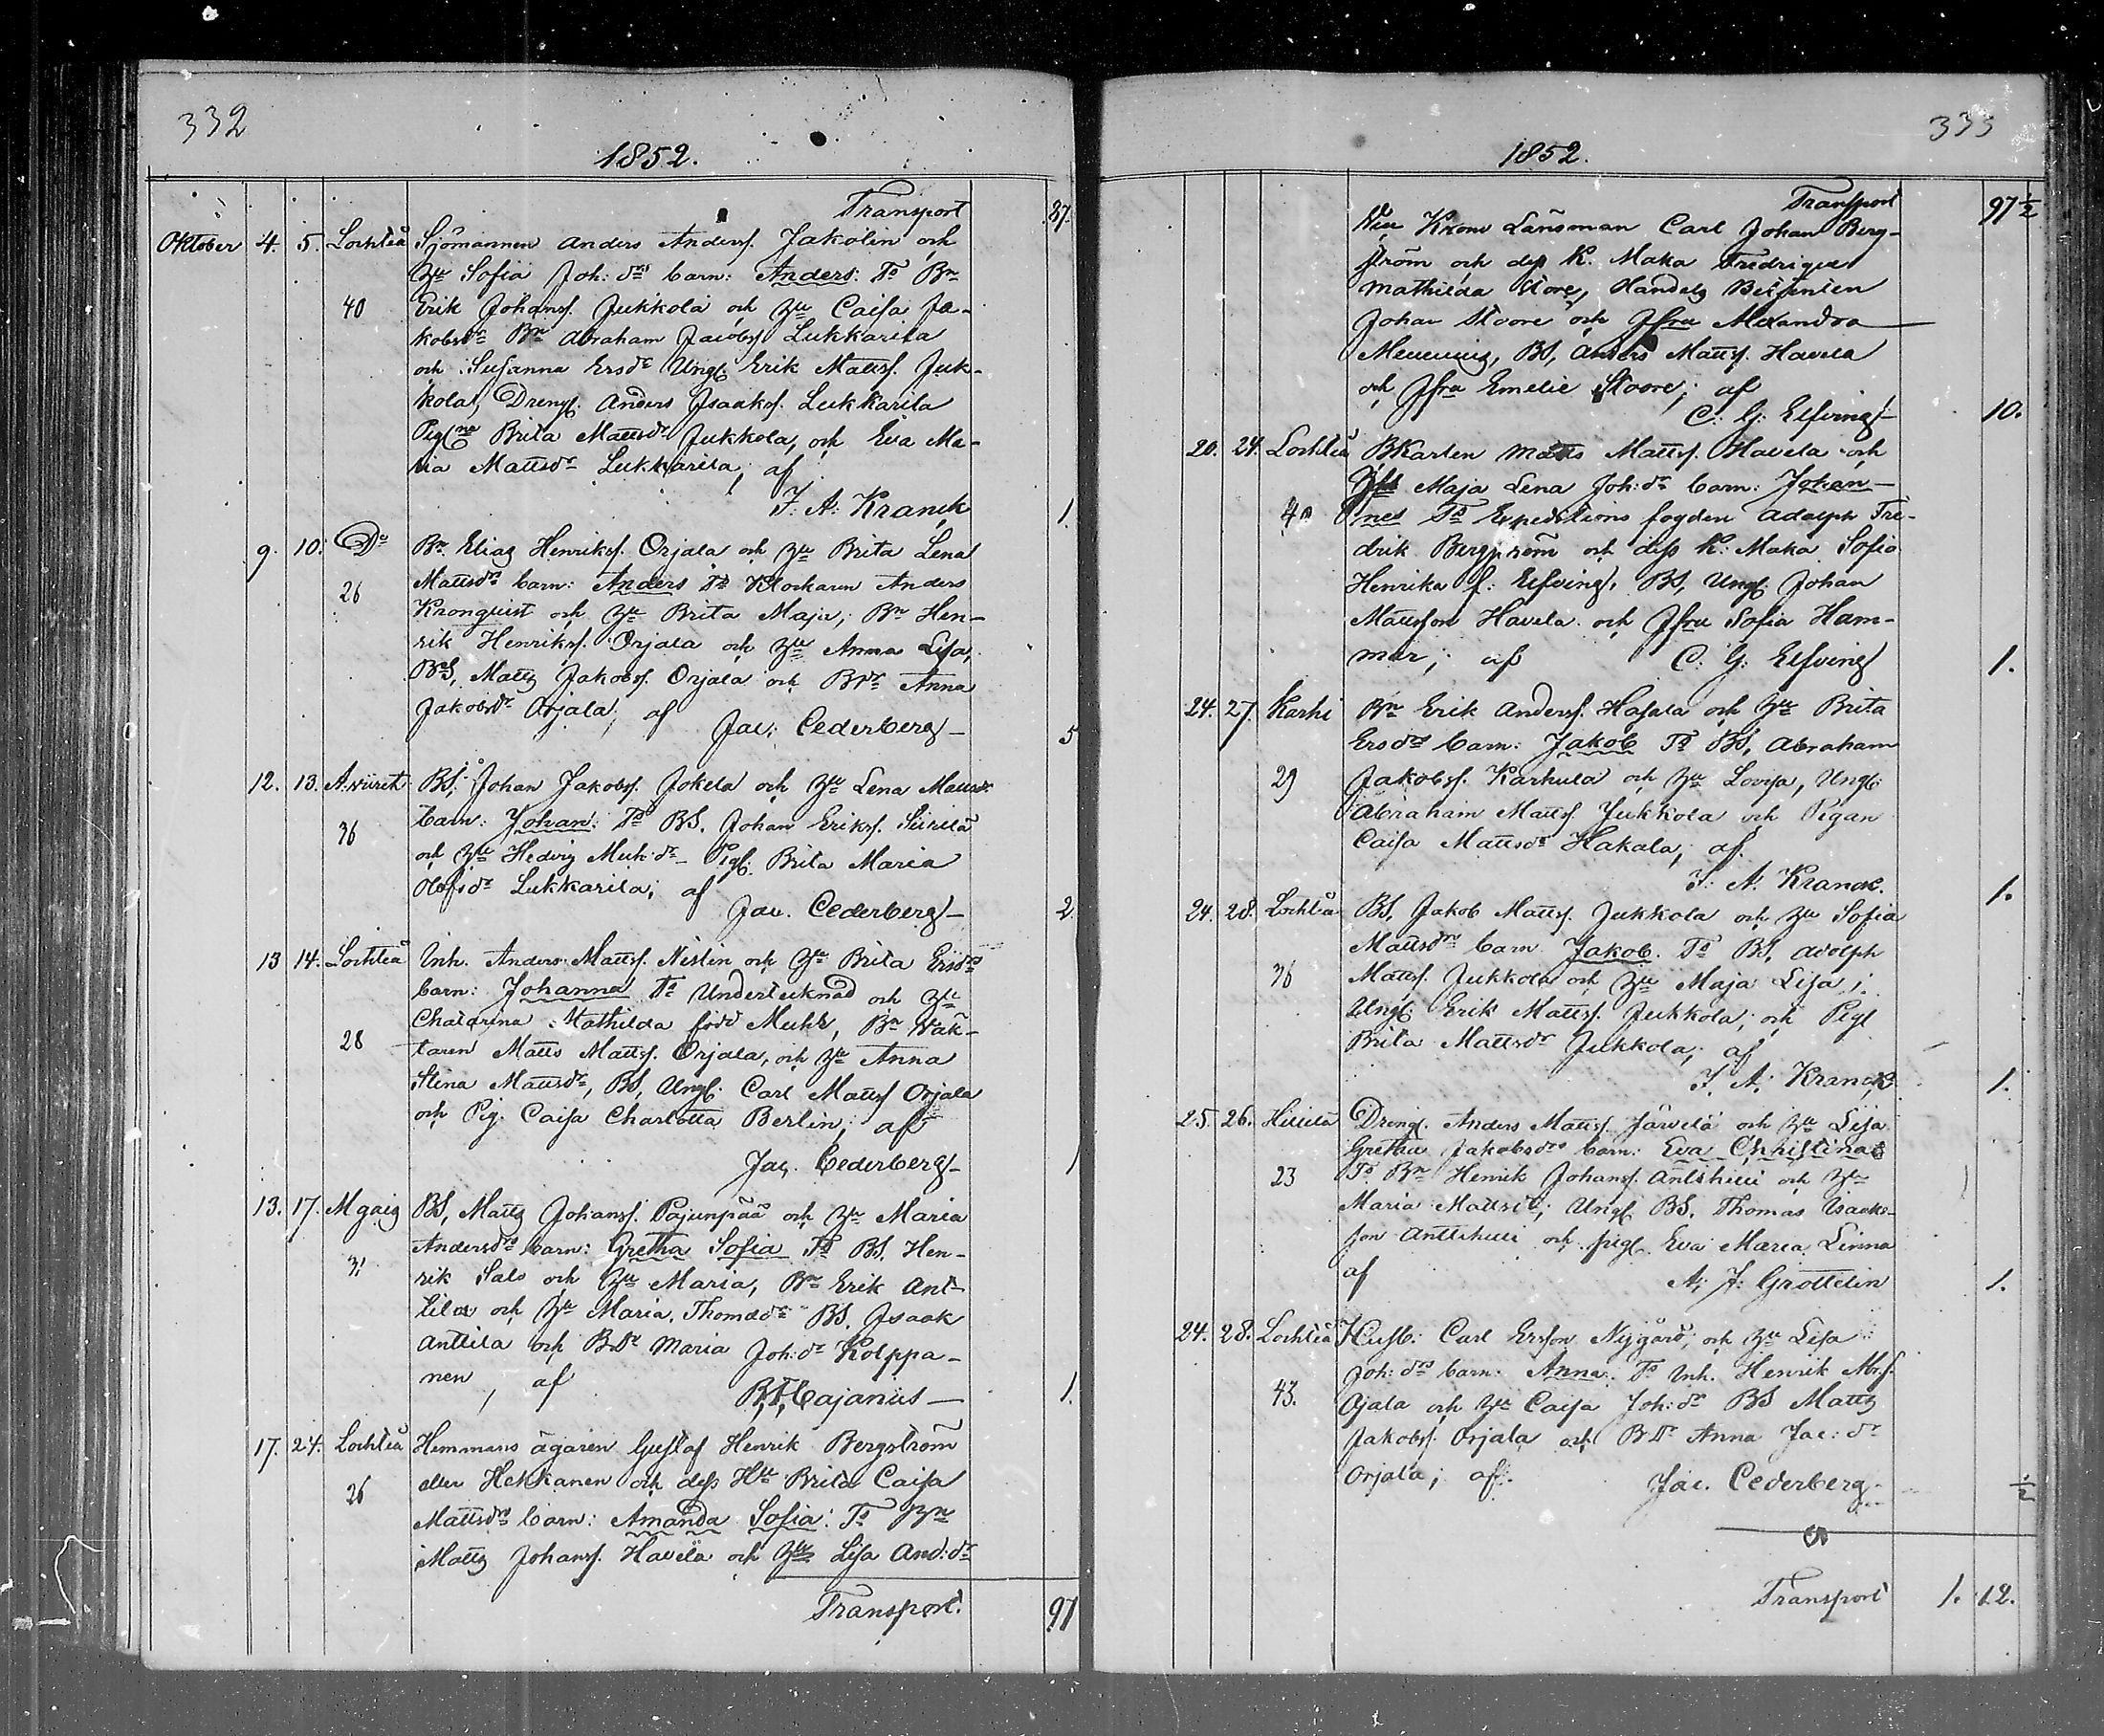 332
1852.
Transport 87.
Oktober 4. 5. Lochteå Sjömannen Anders Anderss. Jakolin och
Hu Sofia Joh: drs barn: Anders: Ts Bn
40 Erik Johanss. Jukkola och Hu Caisa Ja-
kobsdr Bn Abraham Jacobss Lukkarila
och Susanna Ersdr Ungl. Erik Mattss. Juk-
kola, Drengl. Anders Isaakss. Lukkarila
Piglna Brita Mattsdr Jukkola, och Eva Ma-
ria Mattsdr Lukkarila; af
F. A: Kranck 1.
9. 10. Do Bn Elias Henrikss. Orjala och Hu Brita Lena
26 Mattsdrs barn: Anders Ts Klockaren Anders
Kronquist och Hu Brita Maja; Bn Hen-
rik Henrikss. Orjala och Hu Anna Lisa,
BnS, Matts Jakobss. Orjala och BDr Anna
Jakobsdr Orjala, af
Jac: Cederberg 5
12. 13. BS; Johan Jakobss. Jokela och Hu Lena Mattsdr
36 barn: Johan: Ts BS. Johan Erikss.
och Hu Hedvig dr Pigl. Brita Maria
Olofsdr Lukkarila; af
Jac. Cederberg 2.
13 14. Lochteå Inh. Anders Mattss. Nislin och Hu Brita Ersdrs
barn: Johanna Ts Undertecknad och Hu
Chatarina Mathilda född Bn Väk-
28 taren Matts Mattss. Orjala, och Hu Anna
Stina Mattsdr, BS, Ungl. Carl Mattss Orjala
och Pig. Caisa Charlotta Berlin; af
Jac. Cederberg 1
13. 17. BS, Matts Johanss. Pajunpää och Hu Maria
Andersdrs barn: Gretha Sofia Ts BS. Hen-
31 rik Salo och Hu Maria, Bn Erik Ant-
tila och Hu Maria Thomadr BS. Isaak
Anttila och BDr Maria Joh: dr Kolppa-
nen, af Cajanus 1.
17. 24. Lochteå Hemmans ägaren Gustaf Henrik Bergström
26 eller Hekkanen och dess Hu Brita Caisa
Mattsdrs barn: Amanda Sofia: Ts Bn
Matts Johanss. Havela och Hu Lisa And: dr
Transport. 97
333
1852.
Transport 97 1/2
Vice Krono Länsman Carl Johan Berg-
ström och dess K. Maka Fredrique
Mathilda Store, Handels Betjenten
Johan Stoore och Jfru Alexandra
BS, Anders Mattss. Havela
och Jfru Emelie Stoore; af
C: G: Elfving 10.
20. 24. Lochteå BKarlen Matts Mattss. Havela och
Hu Maja Lena Joh: drs barn: Johan-
40 nes Ts Expeditions fogden Adolph Fre-
drik Bergström och dess K: Maka Sofia
Henrika f: Elfving, BS, Ungl. Johan
Mattsson Havela och Jfru Sofia Ham-
mar; af C: G: Elfving 1.
24. 27. Karhi Bn Erik Anderss. Hakala och Hu Brita
Ersdrs barn: Jakob Ts BS, Abraham
29 Jakobss. Karhula och Hu Lovisa, Ungl.
Abraham Mattss Jukkola och Pigan
Caisa Mattsdr Hakala; af.
F. A: Kranck. 1.
24. 28. Lochteå BS, Jakob Mattss. Jukkola och Hu Sofia
Mattsdrs barn Jakob. Ts BS, Adolph
36 Mattss. Jukkola och Hu Maja Lisa;
Ungl. Erik Mattss. Jukkola; och Pigl
Brita Mattsdr Jukkola; af
F. A: Kranck 1.
25. 26. Hillilä Drengl. Anders Mattss. Järvelä och Hu Lisa
Gretha Jakobsdrs barn: Eva Christina
23 Ts Bn Henrik Johanss. Anttihiui och Hu
Maria Mattsdr; Ungl BS. Thomas Isaaks-
son Anttihiui och pigl. Eva Maria Linna
af A: F: Grottelin 1.
24. 28. Lochteå Husb: Carl Ersson Nygård; och Hu Lisa
Joh: drs barn: Anna. Ts Inh. Henrik
43. Ojala och Hu Caisa Joh: dr BS Matts
Jakobss. Orjala och BDr Anna Jac: dr
Orjala; af. Jac. Cederberg 1/2
Transport 1. 12.